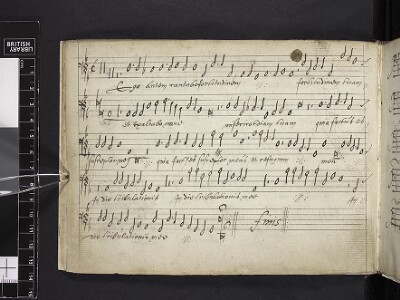 BRITISH
Ego autem cantabo fortitudinem fortitudinem tuam
Et exaltabo mane misericordiam tuam quia factus es
quia factus susceptor meus et refugium
In die tribulationis In die tribulationis mee In
die tribulationis mee finis